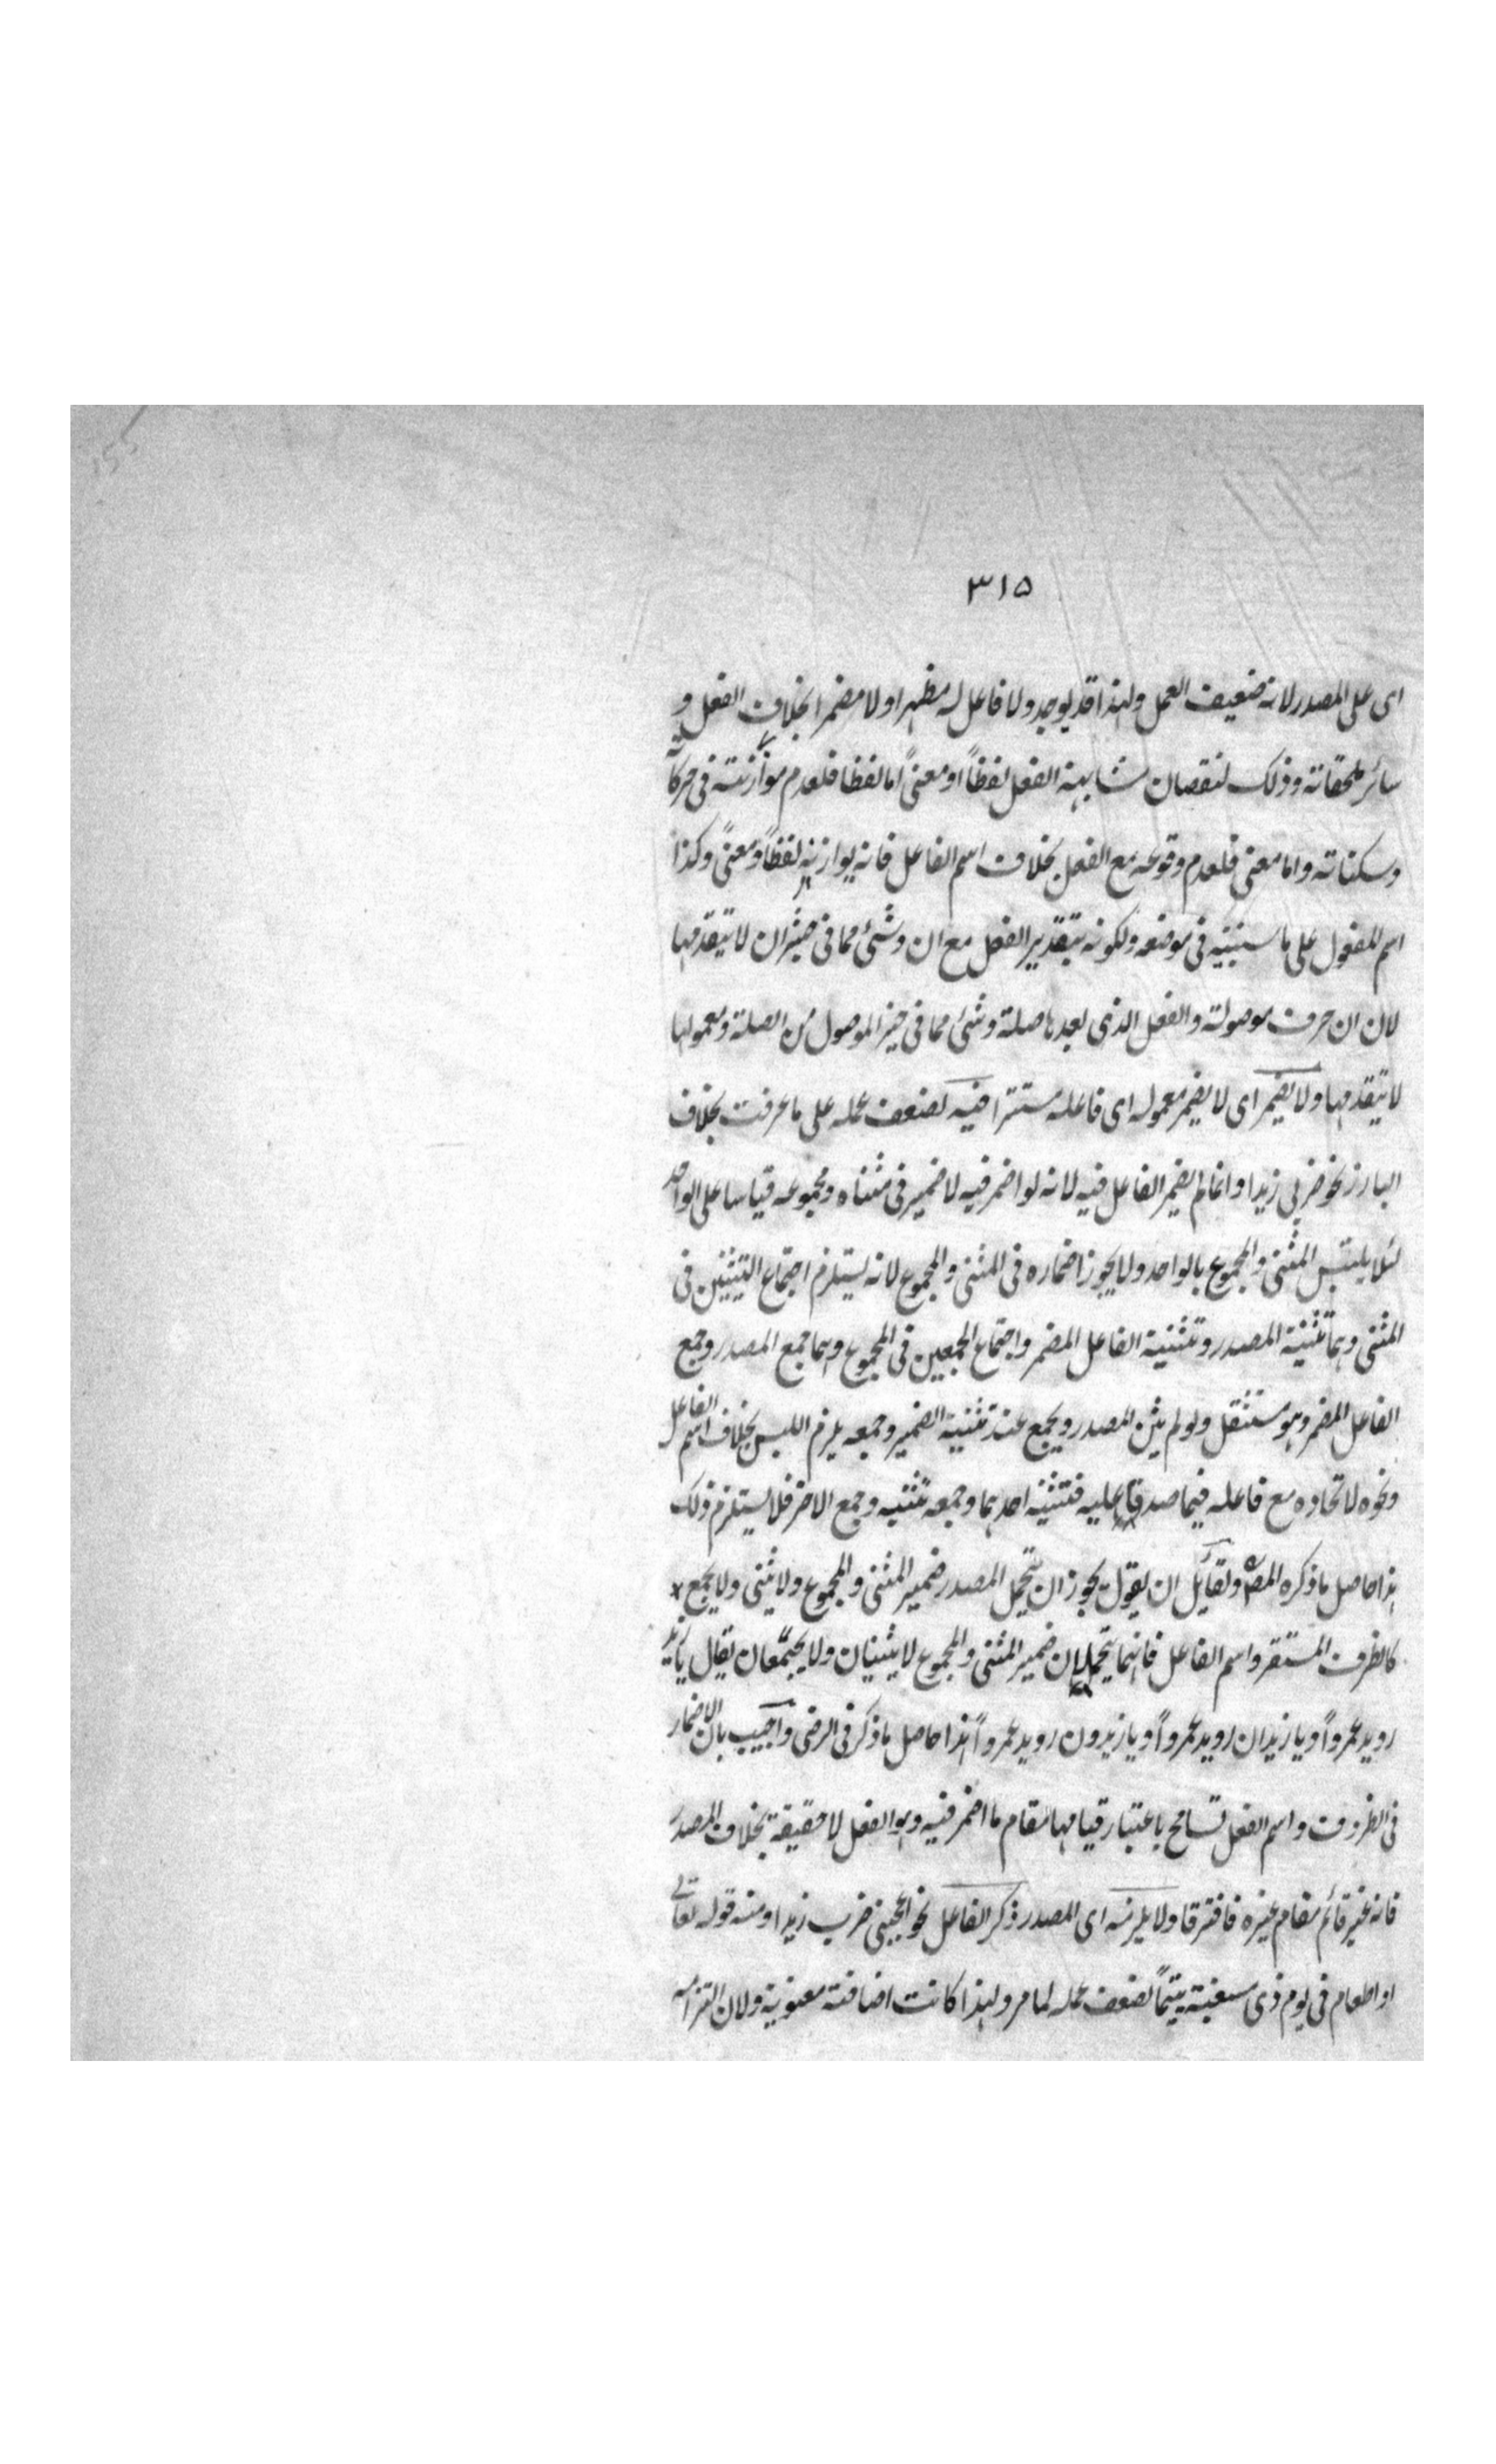 ٣١٥
اى على المصدر لانه ضعيف العمل ولهذا قد يوجد ولا فاعل له مظهرا ولا مضمرا بخلاف الفعل و
سائر ملحقاته وذلك لنقصان مشابهة الفعل لفظاً او معنىً اما لفظا فلعدم موازنته فى حركاته
وسكناته واما معنى فلعدم وقوعه مع الفعل بخلاف اسم الفاعل فانه يوازنه لفظاً ومعنىً وكذا
اسم المفعول على ما سنبينه فى موضعه ولكونه بتقدير الفعل مع ان وشئ مما فى حيّز ان لا يتقدمها
لان ان حرف موصولة والفعل الذى بعدها صلة وشئ مما فى حيز الموصول من الصلة ومعمولها
لا يتقدمها ولا يضمر اى لا يضمر معموله اى فاعله مستترا فيه لضعف عمله على ما عرفت بخلاف
البارز نحو ضربى زيدا وانما لم يضمر الفاعل فيه لانه لو اضمر فيه لاضمير فى مثناه ومجموعه قياسا على الواحد
لئلا يلتبس المثنى والمجموع بالواحد ولا يجوز اضماره فى المثنى والمجموع لانه يستلزم اجتماع التثنيتين فى
المثنى وهما تثنية المصدر وتثنية الفاعل المضمر واجتماع الجمعين فى المجموع وهما جمع المصدر وجمع
الفاعل المضمر وهو مستثقل ولو لم يثن المصدر ويجمع عند تثنية الضمير وجمعه يلزم اللبس بخلاف اسم الفاعل
ونحوه لاتحاده مع فاعله فيما صدقا عليه فتثنية احدهما وجمعه تثنية وجمع الاخر فلا يستلزم ذلك
هذا حاصل ما ذكره المصـ ولقائل ان يقول يجوز ان يتحمل المصدر ضمير المثنى والمجموع ولا يثنى ولا يجمع
كالظرف المستقر واسم الفاعل فانهما يتحملان ضمير المثنى والمجموع لا يثنيان ولا يجمعان يقال يا زيد
رويد عمرواً ويا زيدان رويد عمرواً ويا زيدون رويد عمرواً هذا حاصل ما ذكر فى الرضى واجيب بان الاضمار
فى الظروف واسم الفعل تسامح باعتبار قيامهما مقام ما اضمر فيه وهو الفعل لا حقيقة بخلاف المصدر
فانه غير قائم مقام غيره فافترقا ولا يلزمه اى المصدر ذكر الفاعل نحو اعجبنى ضرب زيدا ومنه قوله تعالى
او اطعام فى يوم ذى مسغبة يتيماً لضعف عمله لما مر ولهذا كانت اضافته معنوية ولان التزامه